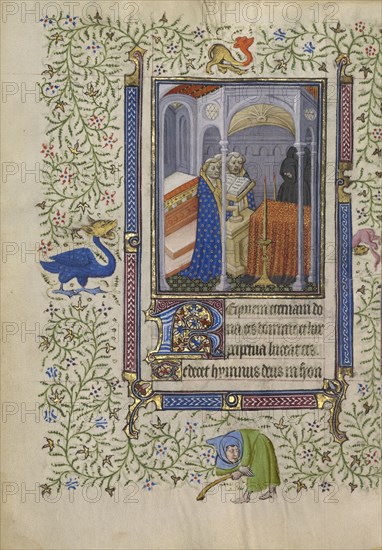 Requiem eternam do
na eis domine et lux
perpetua luceat eis.
Te decet hymnus deus in sion